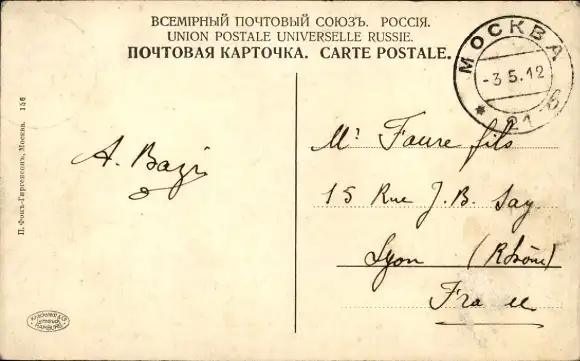 ВСЕМІРНЫЙ ПОЧТОВЫЙ СОЮЗЪ. РОССІЯ.
UNION POSTALE UNIVERSELLE RUSSIE.
ПОЧТОВАЯ КАРТОЧКА. CARTE POSTALE.
МОСКВА
-3.5.12
21
П. Фонъ-Гиргенсонъ, Москва. 156
A. Bazi
Mr Faure fils
15 Rue J. B. Say
Lyon (Rhône)
France